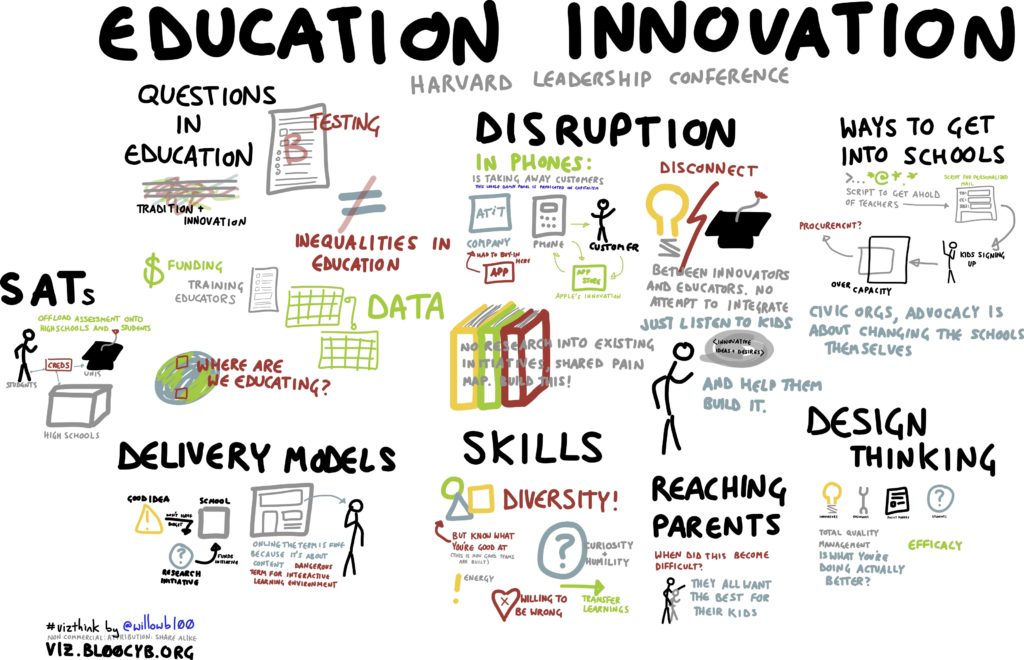 EDUCATION INNOVATION
HARVARD LEADERSHIP CONFERENCE
QUESTIONS
IN
EDUCATION
TRADITION +
INNOVATION
B
TESTING
INEQUALITIES IN
EDUCATION
$ FUNDING
TRAINING
EDUCATORS
DATA
WHERE ARE
WE EDUCATING?
SATs
OFFLOAD ASSESSMENT ONTO
HIGHSCHOOLS AND STUDENTS
CREDS
STUDENTS
UNIS
HIGH SCHOOLS
DISRUPTION
IN PHONES:
IS TAKING AWAY CUSTOMERS
THE WHOLE GAME PANEL IS PREDICATED ON CAPITALISM
AT&T
COMPANY
PHONE
CUSTOMER
HAD TO BUY-IN
HERE
APP
APP
STORE
APPLE'S INNOVATION
NO RESEARCH INTO EXISTING
INITIATIVES, SHARED PAIN
MAP. BUILD THIS!
DISCONNECT
BETWEEN INNOVATORS
AND EDUCATORS. NO
ATTEMPT TO INTEGRATE
JUST LISTEN TO KIDS
(INNOVATIVE
IDEAS + DESIRES)
AND HELP THEM
BUILD IT.
WAYS TO GET
INTO SCHOOLS
>... *@+.*
SCRIPT TO GET AHOLD
OF TEACHERS
SCRIPT FOR PERSONALIZED
MAIL
PROCUREMENT?
KIDS SIGNING
UP
OVER CAPACITY
CIVIC ORGS, ADVOCACY IS
ABOUT CHANGING THE SCHOOLS
THEMSELVES
DELIVERY MODELS
GOOD IDEA
SCHOOL
DON'T HAVE
BUDGET
?
RESEARCH
INITIATIVE
FUNDS
INITIATIVE
ONLINE THE TERM IS FINE
BECAUSE IT'S ABOUT
CONTENT DANGEROUS
TERM FOR INTERACTIVE
LEARNING ENVIRONMENT
SKILLS
DIVERSITY!
BUT KNOW WHAT
YOU'RE GOOD AT
(THIS IS HOW GOOD TEAMS
ARE BUILT)
?
CURIOSITY
+
HUMILITY
! ENERGY
X
WILLING TO
BE WRONG
TRANSFER
LEARNINGS
REACHING
PARENTS
WHEN DID THIS BECOME
DIFFICULT?
THEY ALL WANT
THE BEST FOR
THEIR KIDS
DESIGN
THINKING
?
STUDENTS
TOTAL QUALITY
MANAGEMENT
IS WHAT YOU'RE
DOING ACTUALLY
BETTER?
EFFICACY
#vizthink by @willowbl00
NON COMMERCIAL: ATTRIBUTION: SHARE ALIKE
VIZ.BL00CYB.ORG